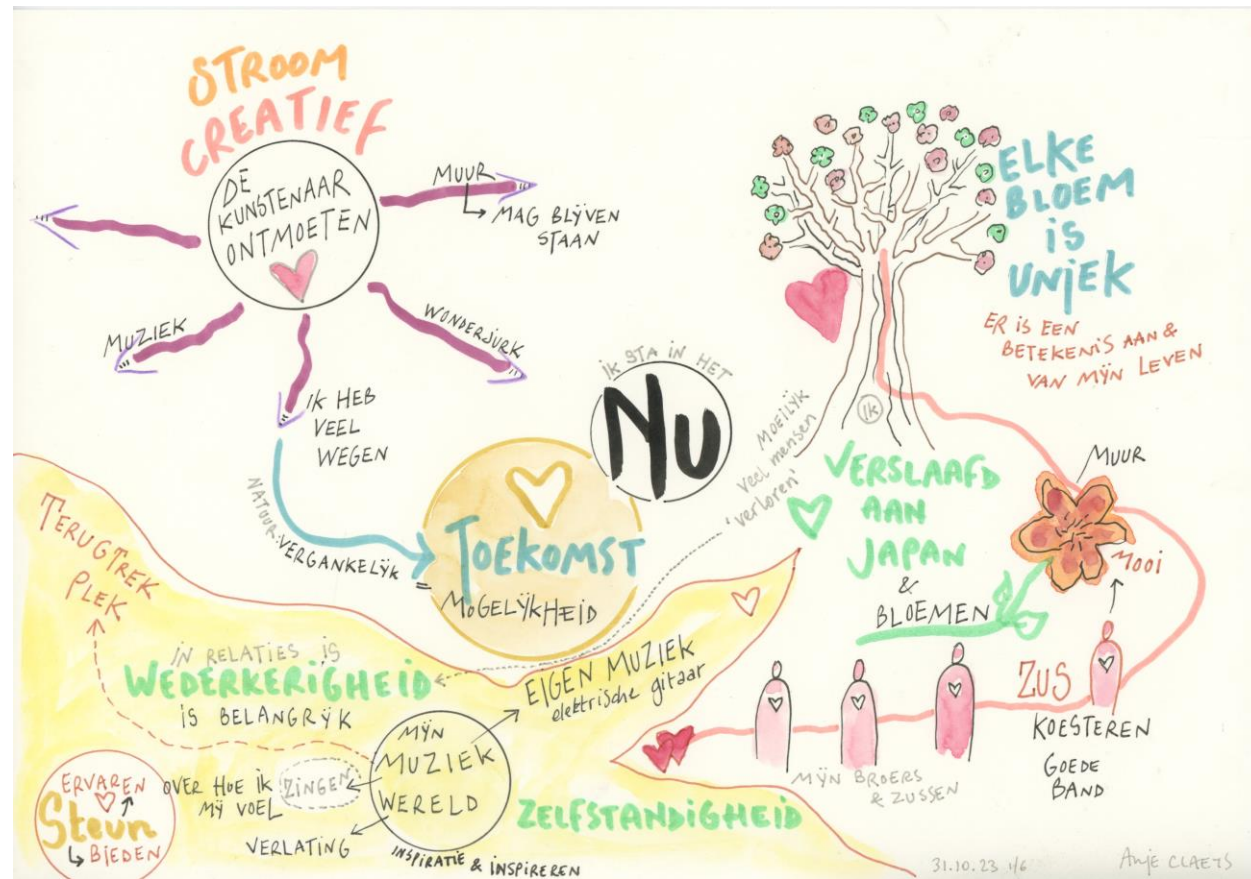 STROOM
CREATIEF
DE
KUNSTENAAR
ONTMOETEN
MUUR
MAG BLIJVEN
STAAN
MUZIEK
WONDERJURK
IK HEB
VEEL
WEGEN
NATUUR: VERGANKELIJK
=
TOEKOMST
MOGELIJKHEID
IK STA IN HET
NU
ELKE
BLOEM
IS
UNIEK
ER IS EEN
BETEKENIS AAN &
VAN MIJN LEVEN
IK
MOEILIJK
veel mensen
'verloren'
VERSLAAFD
AAN
JAPAN
&
BLOEMEN
MUUR
MOOI
ZUS
KOESTEREN
GOEDE
BAND
MIJN BROERS
& ZUSSEN
TERUGTREK
PLEK
IN RELATIES IS
WEDERKERIGHEID
IS BELANGRIJK
EIGEN MUZIEK
elektrische gitaar
MIJN
MUZIEK
WERELD
ZINGEN
OVER HOE IK
MIJ VOEL
VERLATING
INSPIRATIE & INSPIREREN
ZELFSTANDIGHEID
ERVAREN
Steun
BIEDEN
31.10.23 1/6
Anje CLAEYS